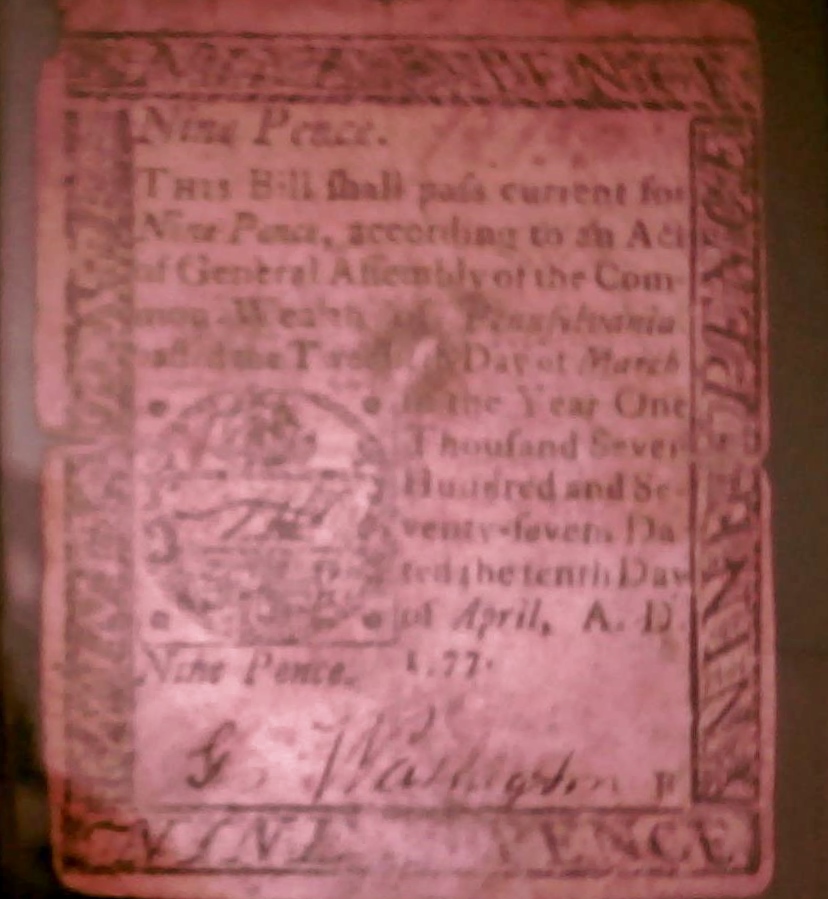 NINE PENCE
Nine Pence.
THIS Bill ſhall paſs current for
Nine Pence, according to an Act
of General Aſſembly of the Com-
mon-Wealth of Pennſylvania
Day of March
in the Year One
Thouſand Seven
Hundred and Se-
venty-ſeven. Da-
ted the tenth Day
of April, A. D.
1777.
Nine Pence.
G. Washington
NINE PENCE
NINE PENCE